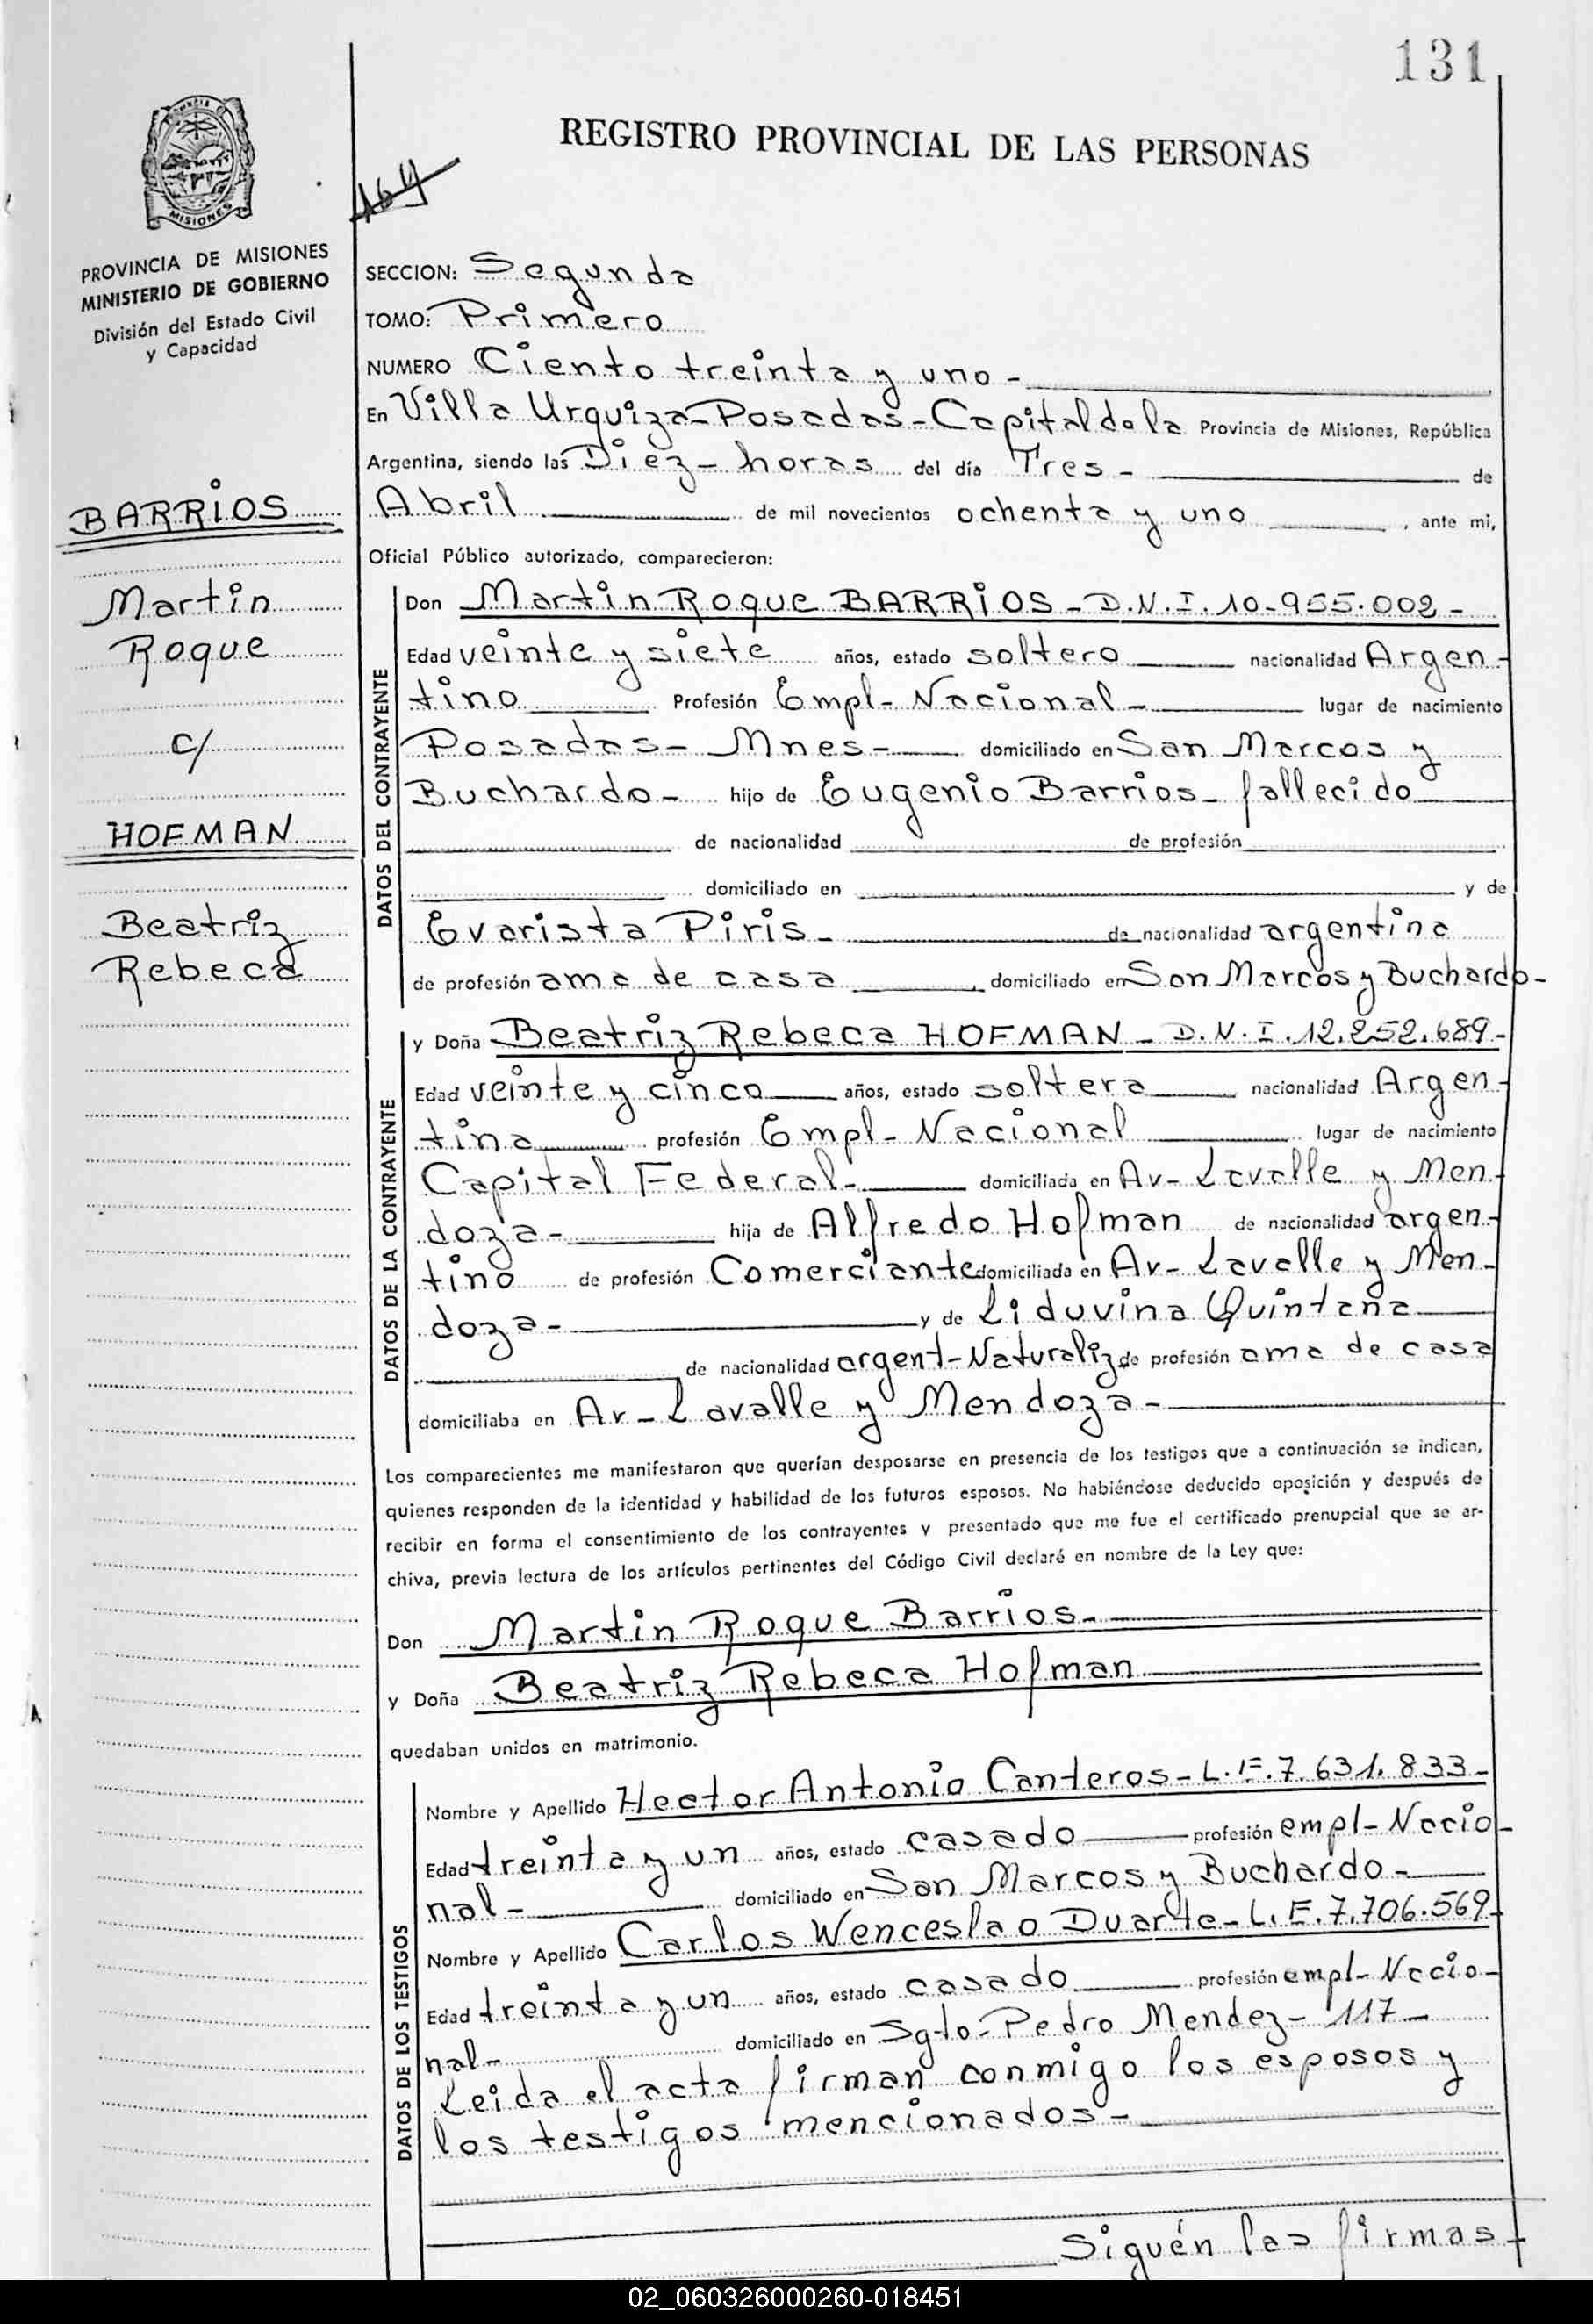 131
REGISTRO PROVINCIAL DE LAS PERSONAS
MISIONES
PROVINCIA DE MISIONES
MINISTERIO DE GOBIERNO
División del Estado Civil
y Capacidad
164
SECCION: Segunda
TOMO: Primero
NUMERO Ciento treinta y uno -
En Villa Urquiza - Posadas - Capital de la Provincia de Misiones, República
Argentina, siendo las Diez - horas del día Tres - de
Abril de mil novecientos ochenta y uno, ante mi,
Oficial Público autorizado, comparecieron:
BARRIOS
Martin
Roque
c/
HOFMAN
Beatriz
Rebeca
DATOS DEL CONTRAYENTE
Don Martin Roque BARRIOS - D.N.I. 10-955.002 -
Edad veinte y siete años, estado soltero nacionalidad Argen-
tino Profesión Empl - Nacional - lugar de nacimiento
Posadas - Mnes - domiciliado en San Marcos y
Buchardo - hijo de Eugenio Barrios - fallecido
de nacionalidad de profesión
domiciliado en y de
Evarista Piris - de nacionalidad argentina
de profesión ama de casa domiciliado en San Marcos y Buchardo -
DATOS DE LA CONTRAYENTE
y Doña Beatriz Rebeca HOFMAN - D.N.I. 12.252.689 -
Edad veinte y cinco años, estado soltera nacionalidad Argen-
tina profesión Empl - Nacional lugar de nacimiento
Capital Federal - domiciliada en Av - Lavalle y Men-
doza - hija de Alfredo Hofman de nacionalidad argen-
tino de profesión Comerciante domiciliada en Av - Lavalle y Men-
doza - y de Liduvina Quintana
de nacionalidad argent - Naturaliz de profesión ama de casa
domiciliaba en Av - Lavalle y Mendoza -
Los comparecientes me manifestaron que querían desposarse en presencia de los testigos que a continuación se indican,
quienes responden de la identidad y habilidad de los futuros esposos. No habiéndose deducido oposición y después de
recibir en forma el consentimiento de los contrayentes y presentado que me fue el certificado prenupcial que se ar-
chiva, previa lectura de los artículos pertinentes del Código Civil declaré en nombre de la Ley que:
Don Martin Roque Barrios -
y Doña Beatriz Rebeca Hofman
quedaban unidos en matrimonio.
DATOS DE LOS TESTIGOS
Nombre y Apellido Hector Antonio Canteros - L.E. 7.631.833 -
Edad treinta y un años, estado casado profesión empl - Nacio-
nal - domiciliado en San Marcos y Buchardo -
Nombre y Apellido Carlos Wenceslao Duarte - L.E. 7.706.569 -
Edad treinta y un años, estado casado profesión empl - Nacio-
nal - domiciliado en Sgto - Pedro Mendez - 117 -
Leida el acta firman conmigo los esposos y
los testigos mencionados -
Siguén las firmas -
02_060326000260-018451